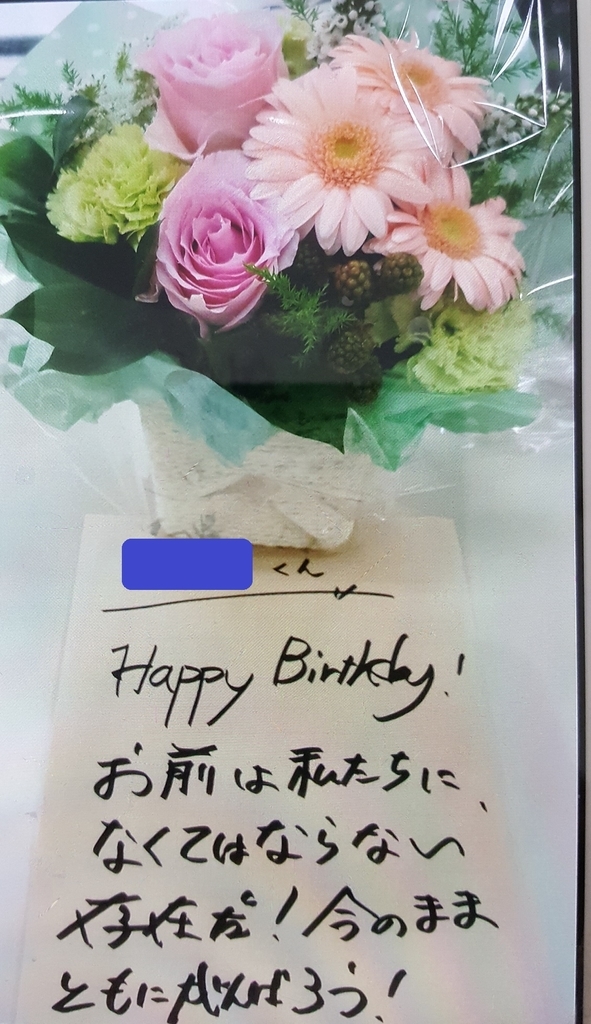 くん
Happy Birthday!
お前は私たちに、
なくてはならない
存在だ!今のまま
ともにがんばろう!